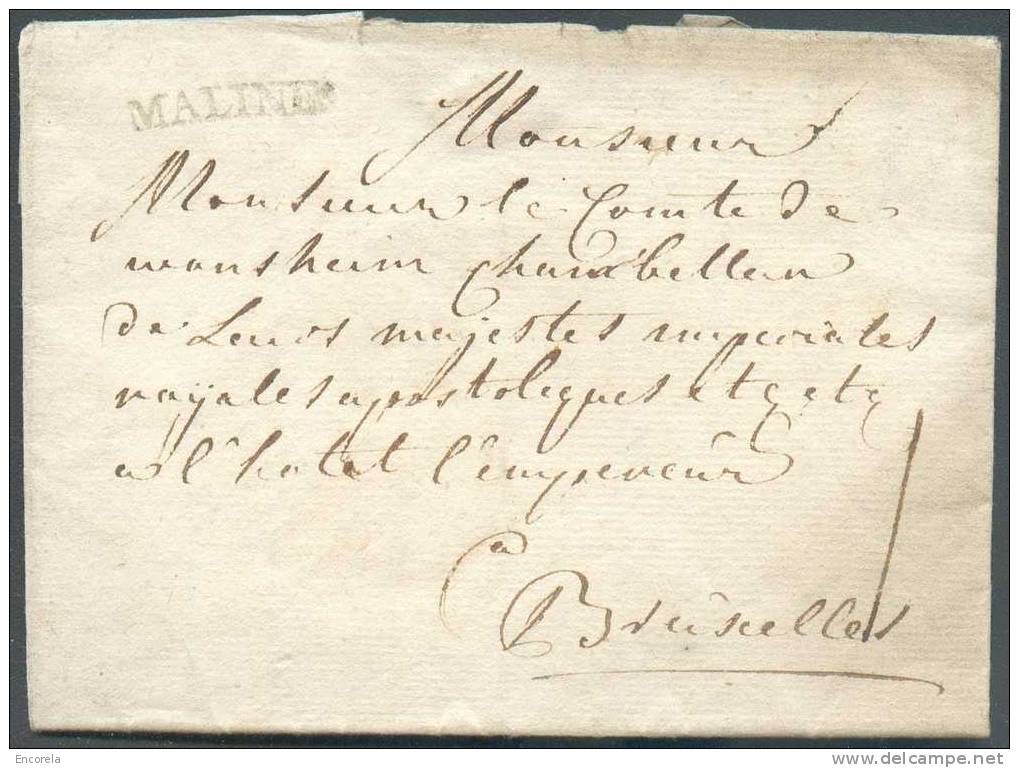 MALINES
Monsieur
Monsieur le Comte de
wonsheim Chambellan
de Leurs majestes imperiales
royales apostoliques etc etc
a l'hotel l'empereur
a
Bruxelles
Encorela
www.delcampe.net